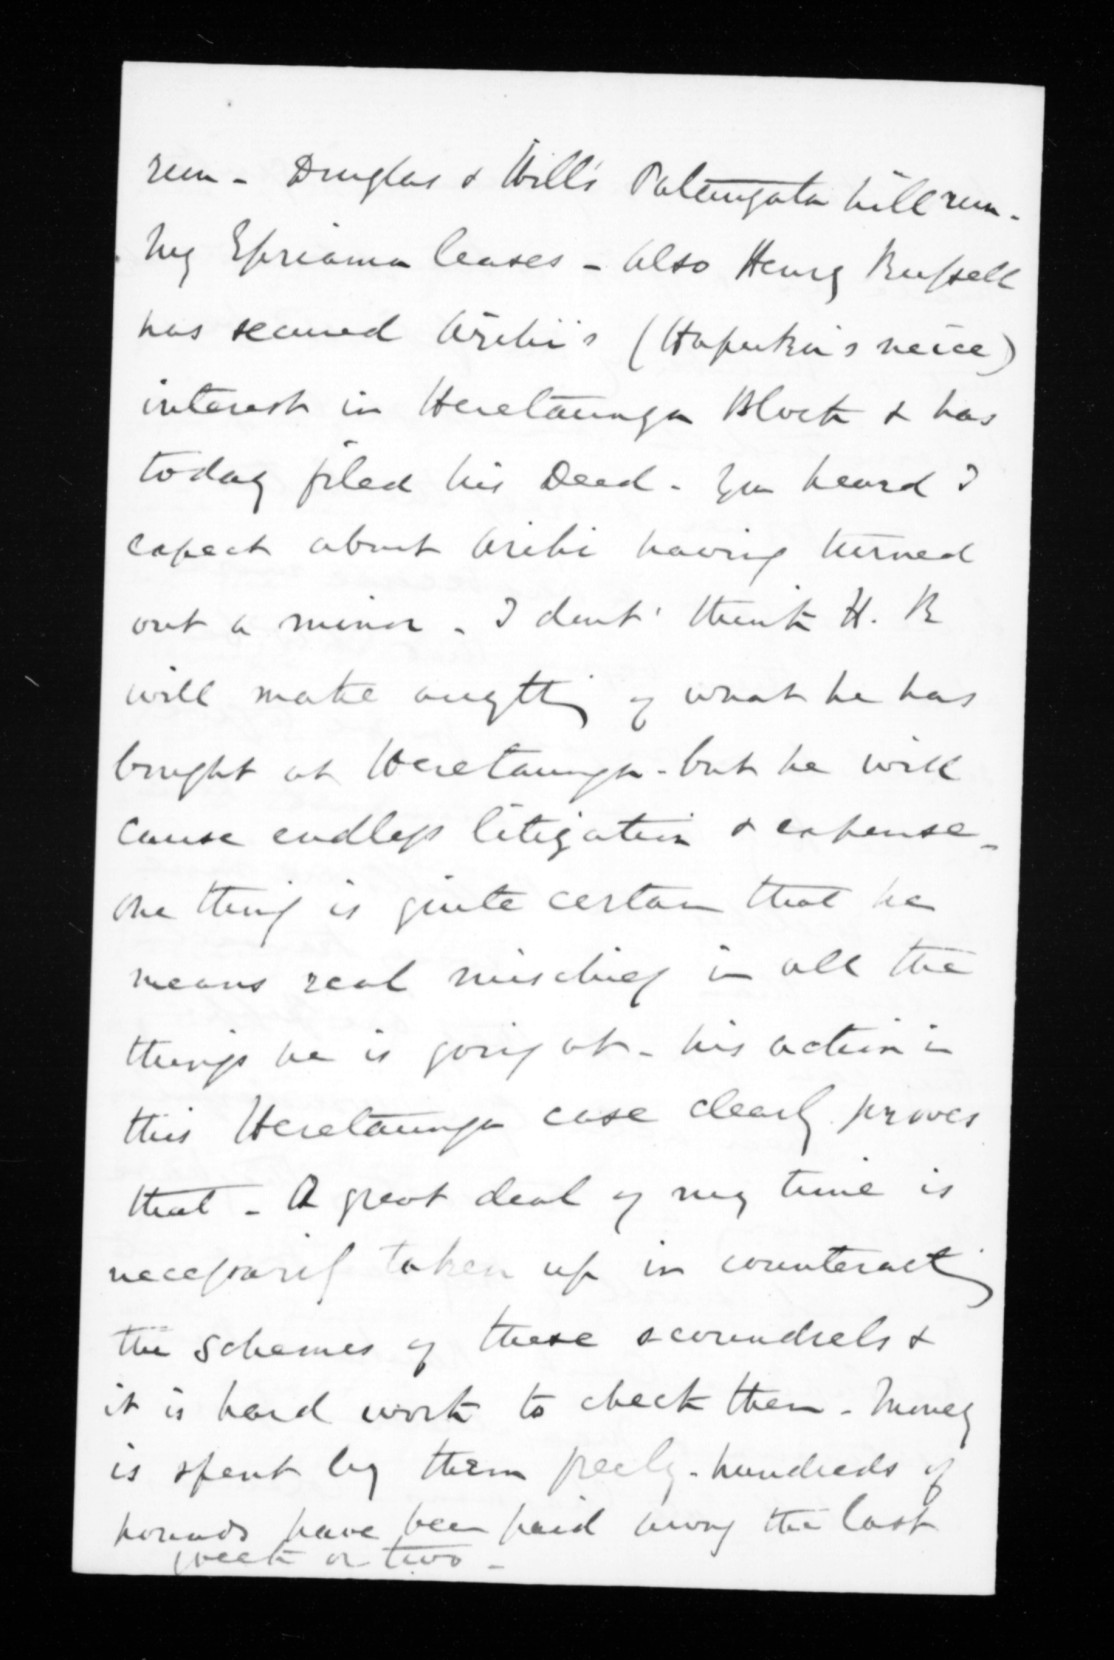 run - Douglas & Hill's Patangata hill run -
My Epriama leases - also Henry Russell
has secured Arihi's (Hapuku's neice)
interest in Heretaunga Block & has
today filed his Deed. You heard I
expect about Arihi having turned
out a minor. I dont' think H. R
will make anything of what he has
bought at Heretaunga - but he will
cause endless litigation & expense -
one thing is quite certain that he
means real mischief in all the
things he is going at - his action in
this Heretaunga case clearly proves
that - A great deal of my time is
necessarily taken up in counteracting
the schemes of these scoundrels &
it is hard work to check them - Money
is spent by them freely - hundreds of
pounds have been paid away the last
week or two -